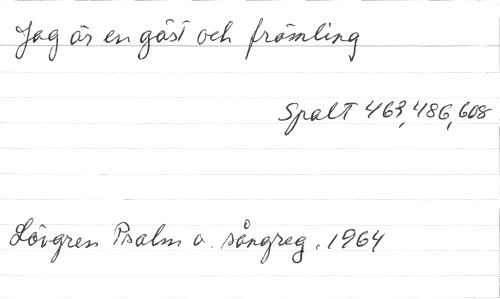 Jag är en gäst och främling
Spalt 463, 486, 608
Lövgren Psalm o. sångreg. 1964